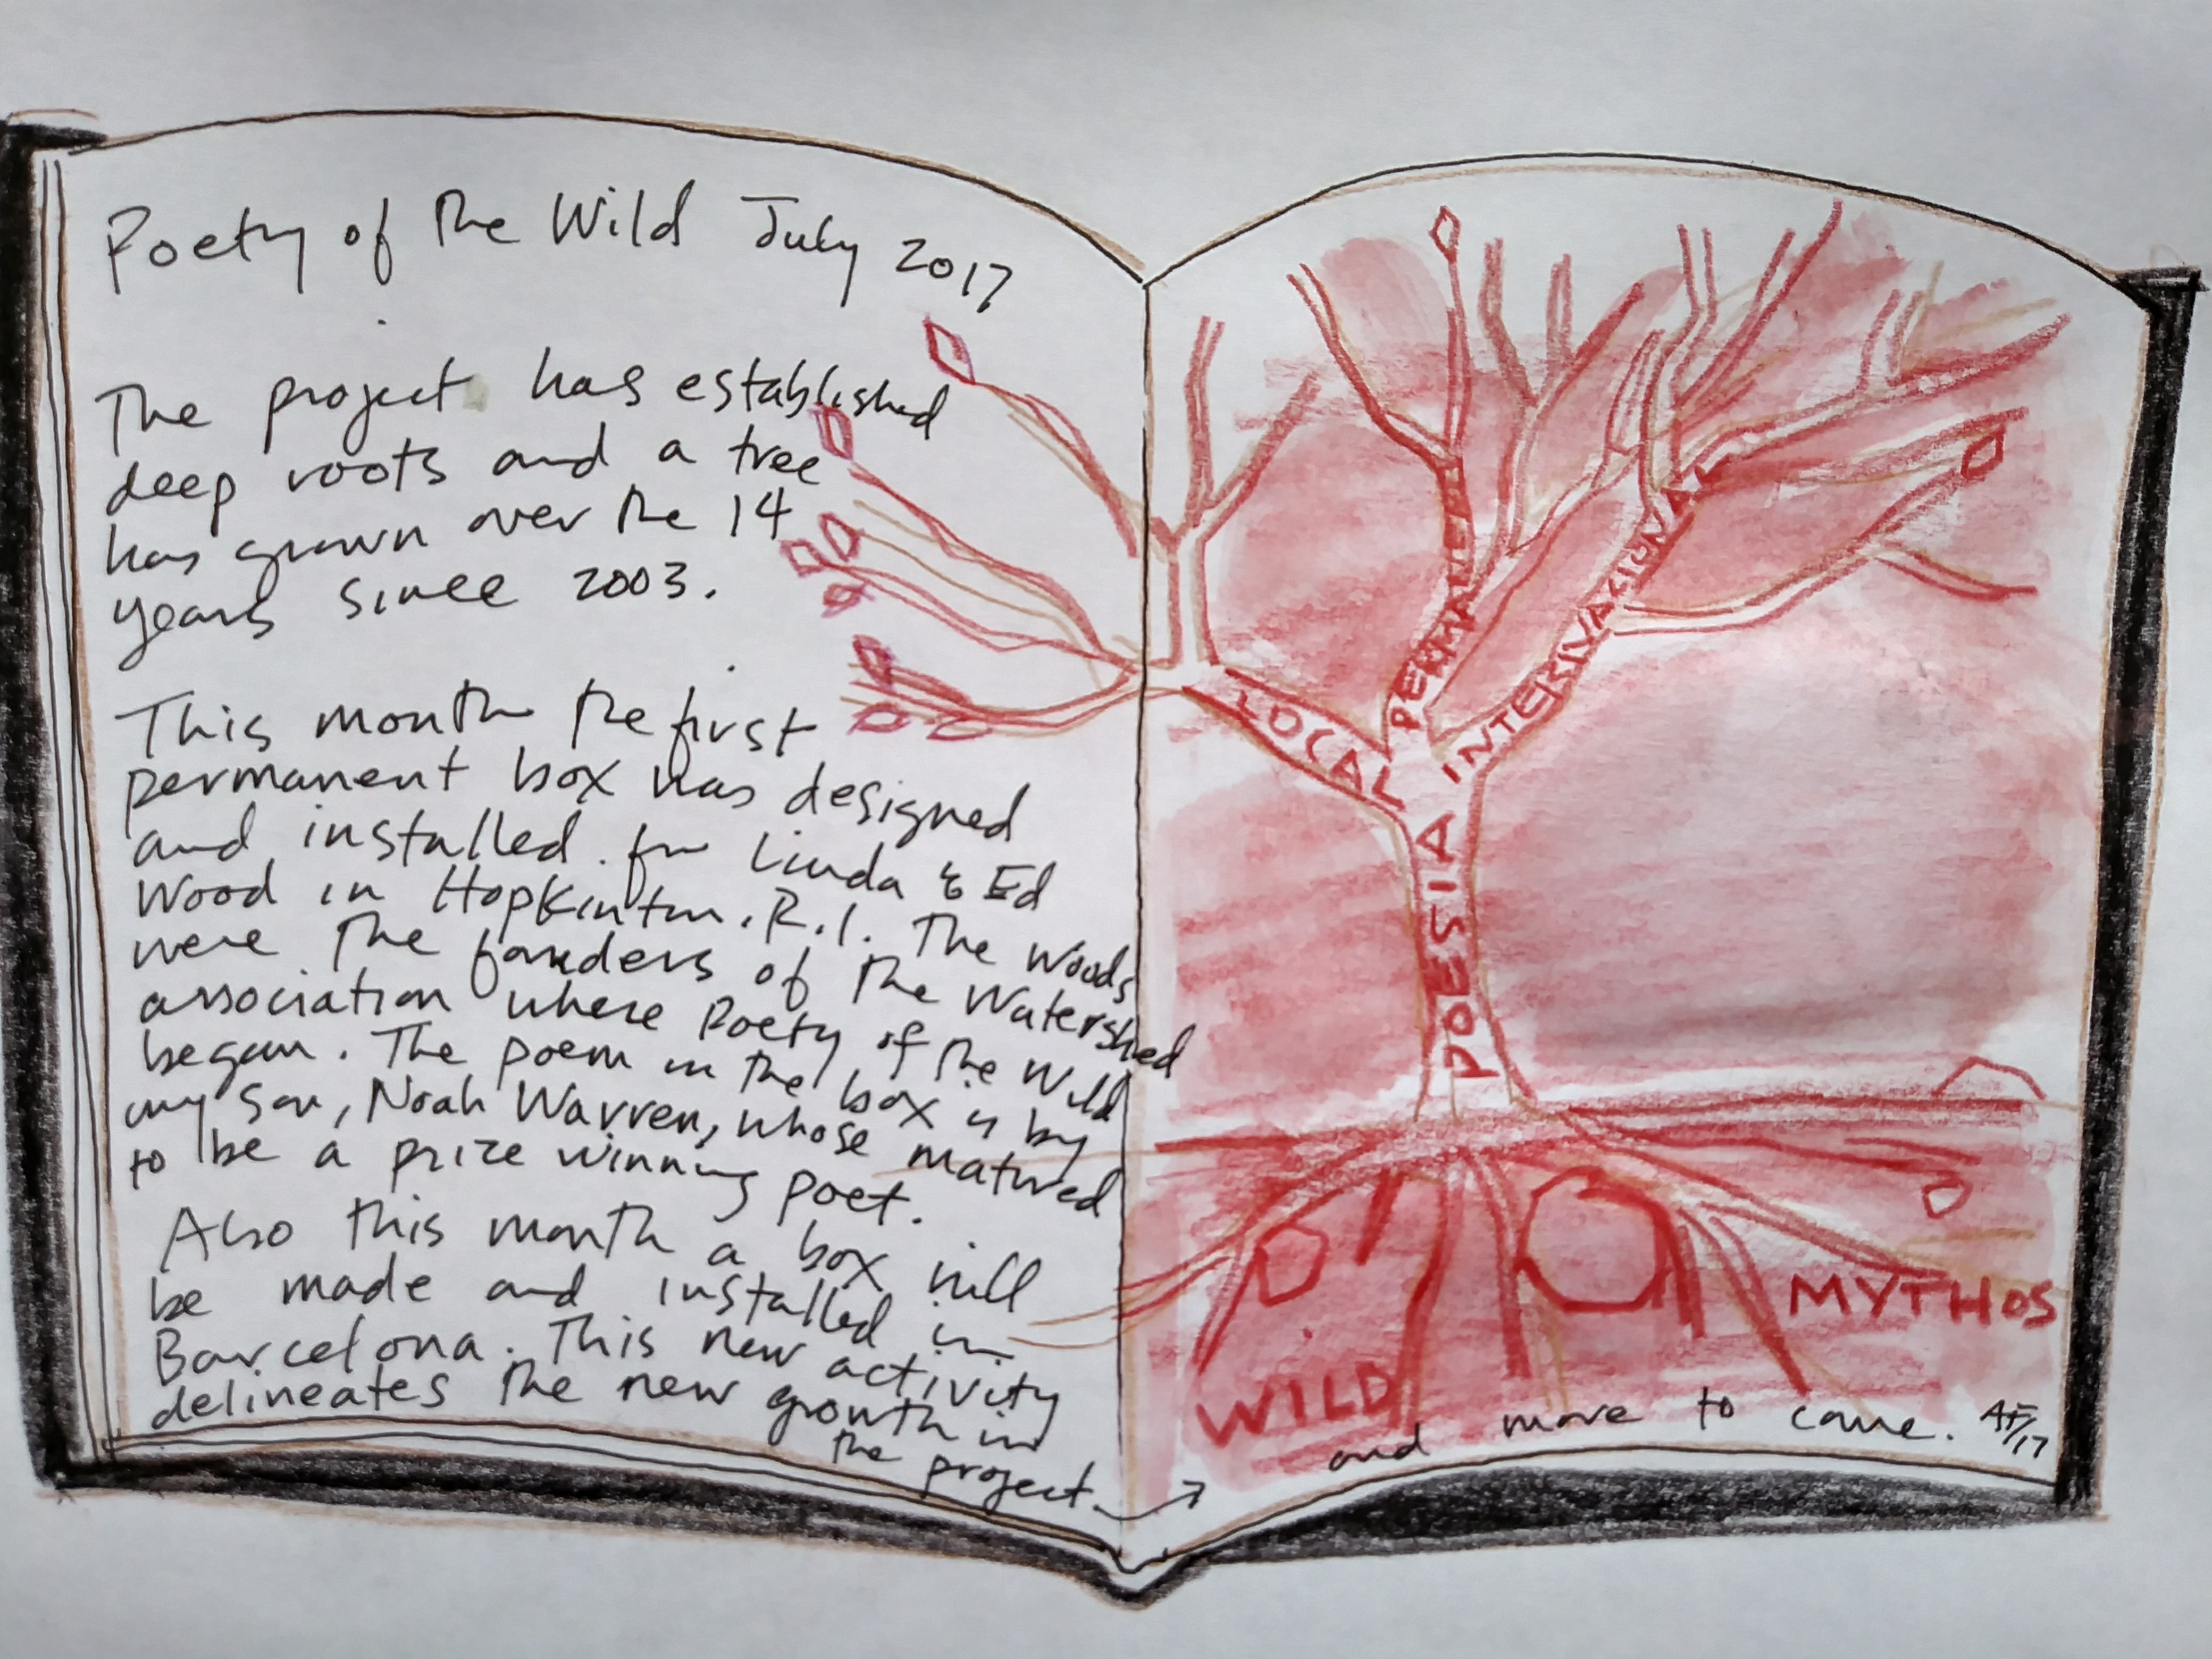 Poetry of the Wild July 2017
The project has established
deep roots and a tree
has grown over the 14
years since 2003.
This month the first
permanent box was designed
and installed for Linda & Ed
Wood in Hopkinton, R.I. The Woods
were the founders of the Watershed
association where Poetry of the Wild
began. The poem in the box is by
my son, Noah Warren, whose matured
to be a prize winning poet.
Also this month a box will
be made and installed in
Barcelona. This new activity
delineates the new growth in
the project
and more to come. AF/17
LOCAL
PERMANENT
INTERNACIONAL
POESIA
WILD
MYTHOS